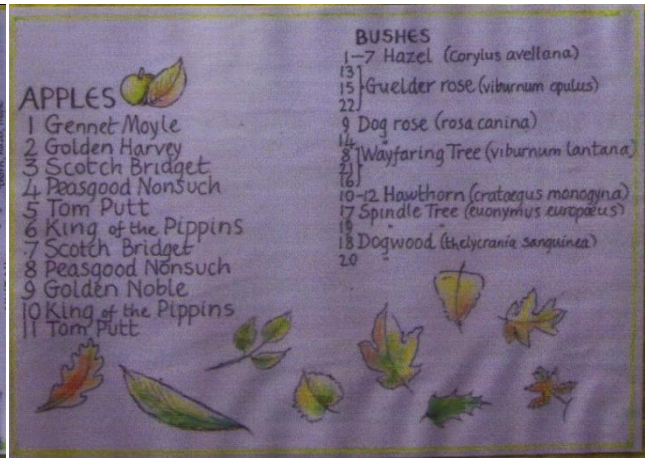 APPLES
1 Gennet Moyle
2 Golden Harvey
3 Scotch Bridget
4 Peasgood Nonsuch
5 Tom Putt
6 King of the Pippins
7 Scotch Bridget
8 Peasgood Nonsuch
9 Golden Noble
10 King of the Pippins
11 Tom Putt
BUSHES
1-7 Hazel (corylus avellana)
13
15 Guelder rose (viburnum opulus)
22
9 Dog rose (rosa canina)
14 "
8 Wayfaring Tree (viburnum lantana)
21
16
10-12 Hawthorn (crataegus monogyna)
17 Spindle Tree (euonymus europaeus)
19 " "
18 Dogwood (thelycrania sanguinea)
20 "